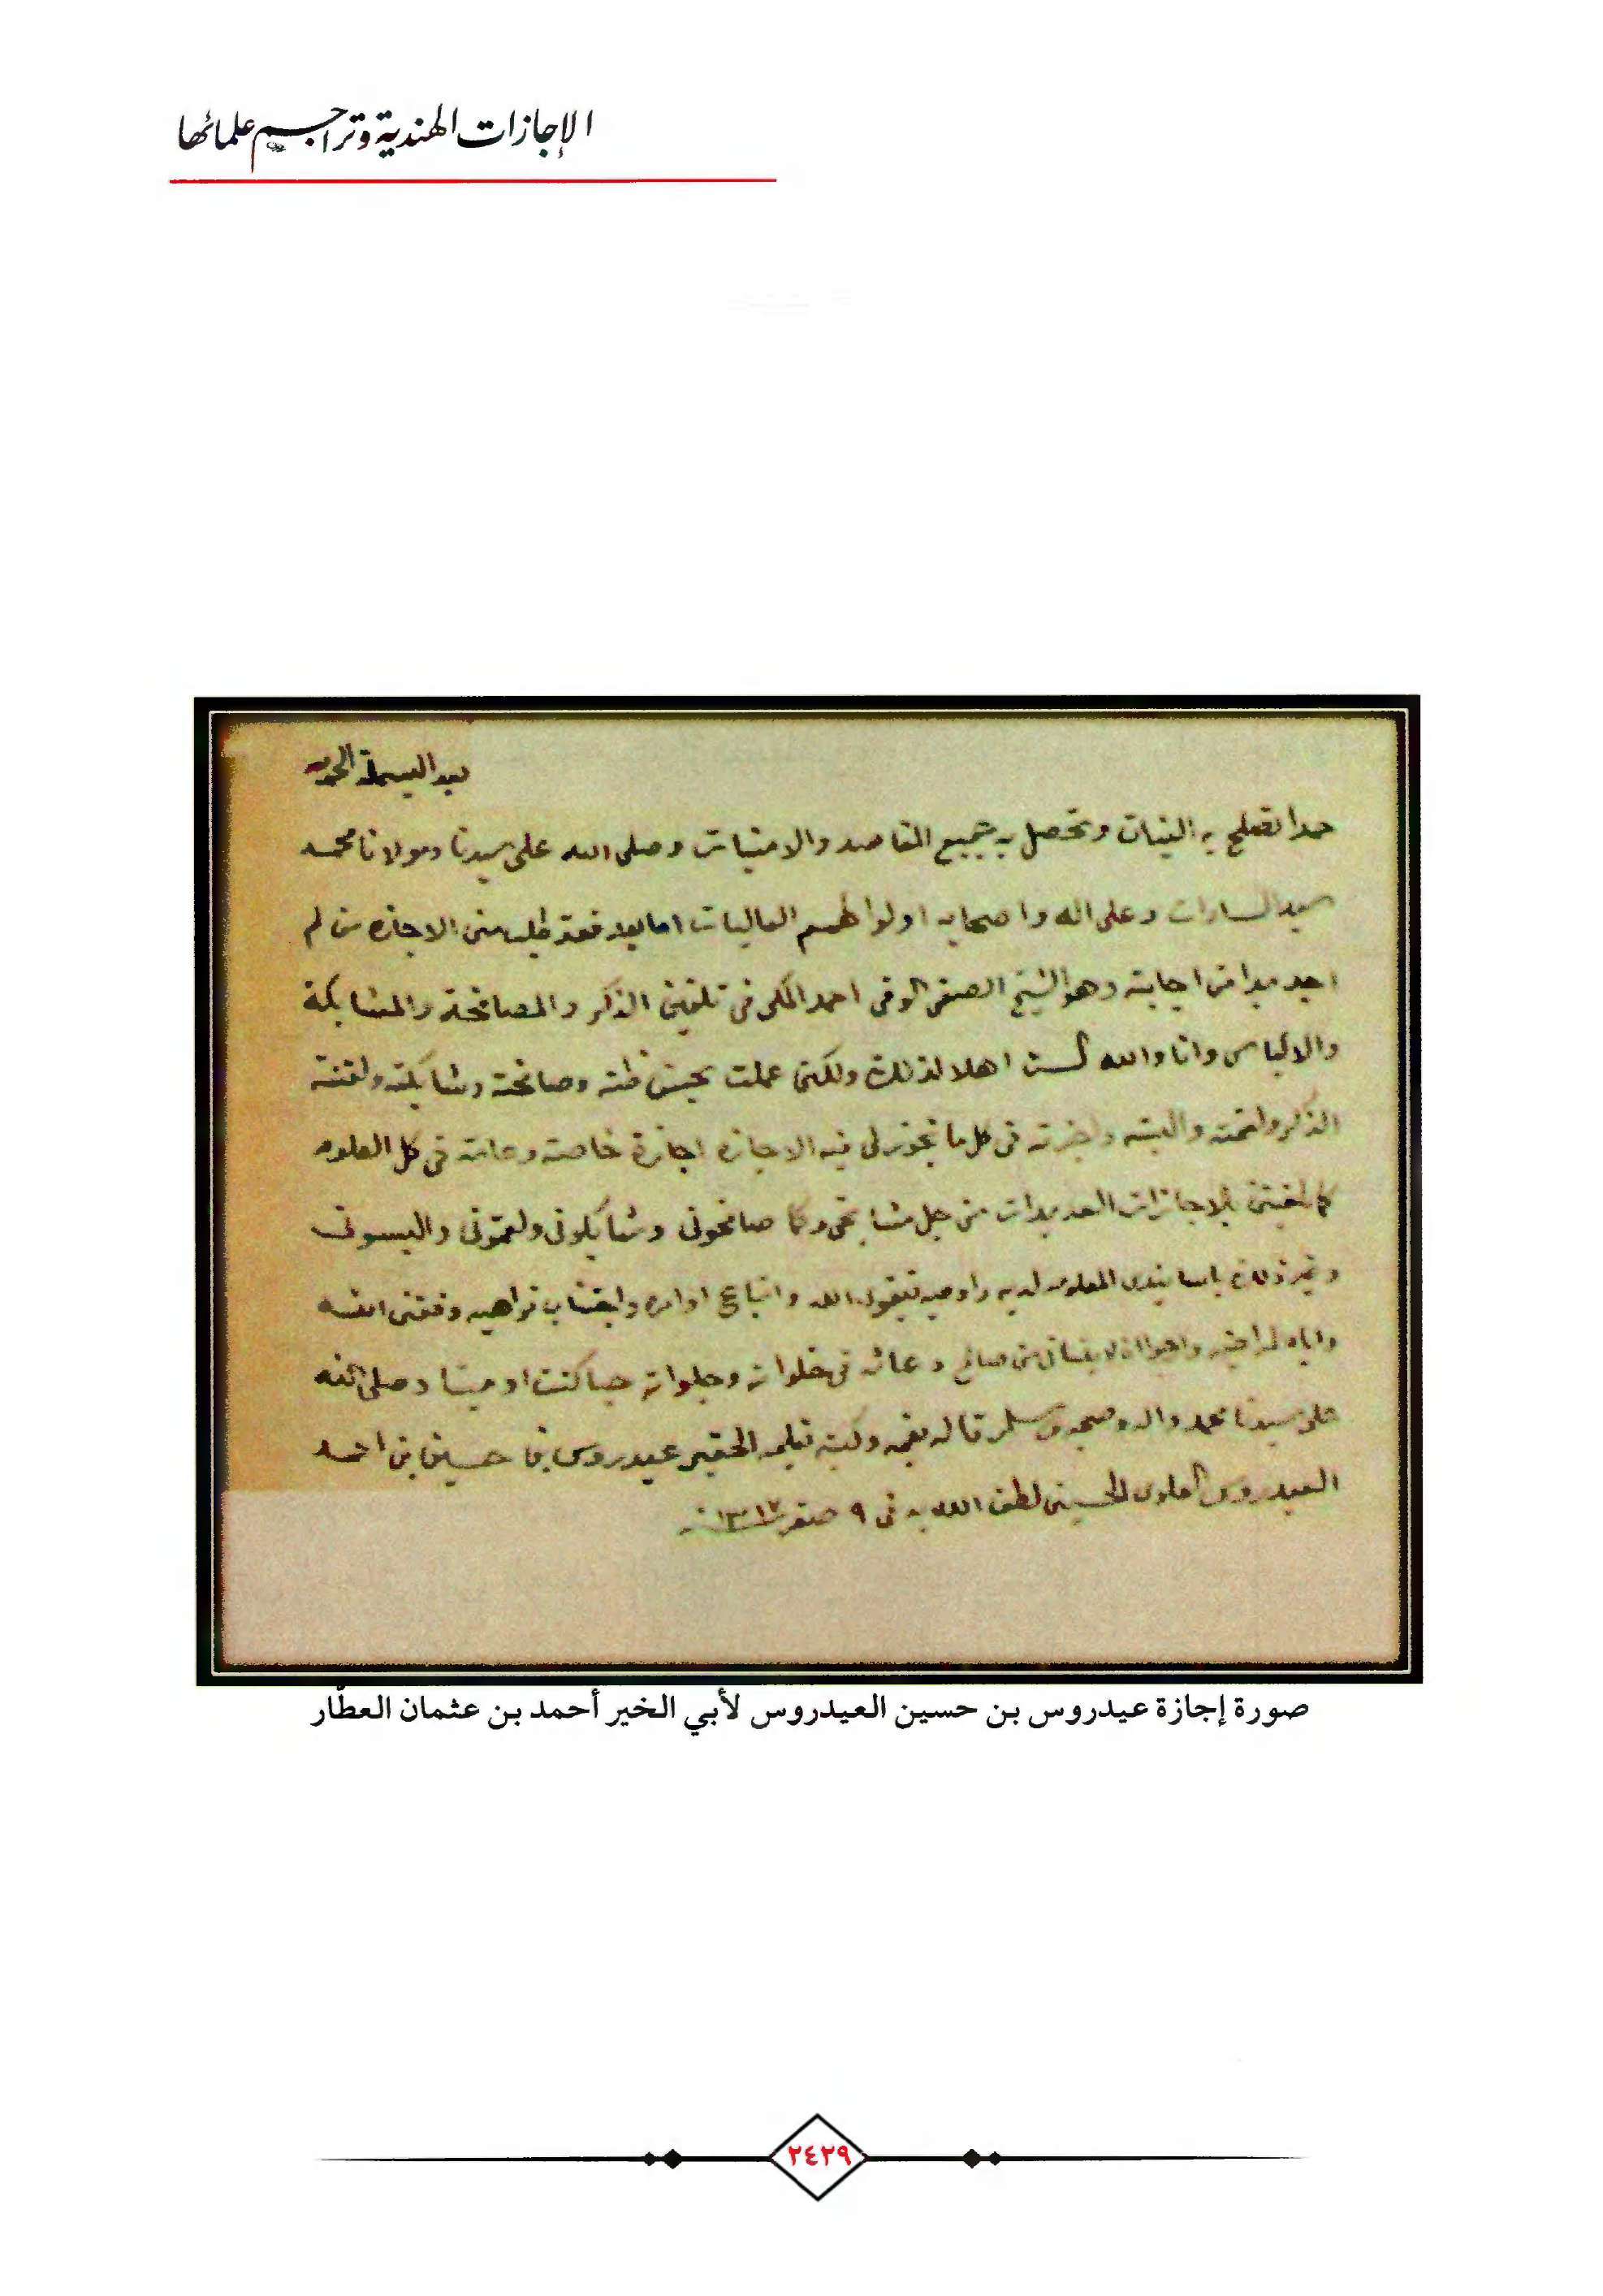 الإجازات الهندية وتراجم علمائها
بعد البسملة الحمد لله
حمدا تصلح به النيات وتحصل به جميع المقاصد والامنيات وصلى الله على سيدنا ومولانا محمد
سيد السادات وعلى اله واصحابه اولوا الهمم العاليات اما بعد فقد طلب منى الاجازه من لم
اجد بدا من اجابته وهو الشيخ الصفى الوفى احمد المكى فى تلقين الذكر والمصافحة والمشابكة
والالباس وانا والله لست اهلا لذلك ولكنى عملت بحسن ظنه وصافحته وشابكته ولقنته
الذكر ولقمته والبسته واجزته فى كل ما تجوز لى فيه الاجازه اجازة خاصة وعامة فى كل العلوم
كما الاجازات العديدات من جل مشايخى وكما صافحونى وشابكونى ولقمونى والبسونى
وغير ذلك باسانيدى المعلومه لديه واوصيه بتقوى الله واتباع اوامره واجتناب نواهيه وفقنى الله
واياه لمراضيه وان لا ينسانى من صالح دعائه فى خلواته وجلواته حيا كنت او ميتا وصلى الله
على سيدنا محمد واله وصحبه وسلم قاله بفمه وكتبه بقلمه الحقير عيدروس بن حسين بن احمد
العيدروس العلوى الحسينى لطف الله به فى ٩ صفر ١٣١٢
صورة إجازة عيدروس بن حسين العيدروس لأبي الخير أحمد بن عثمان العطّار
٢٤٢٩